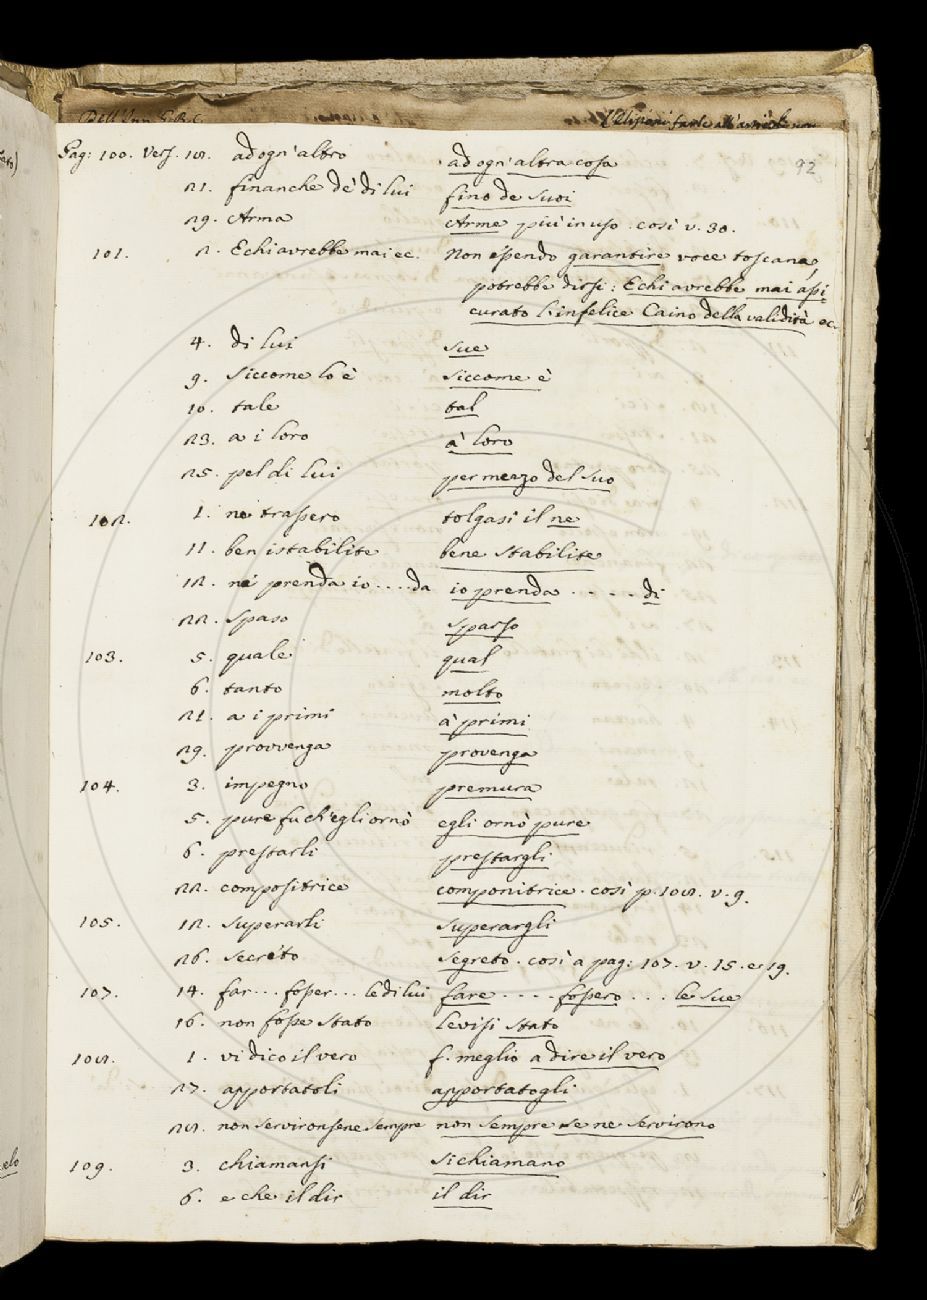 Pag: 100. Vers. 18. ad ogn'altro ad ogn'altra cosa 92
21. finanche de' di lui fino de suoi
29. Arma Arme più in uso. così v. 30.
101. 2. E chi avrebbe mai ec. Non essendo garantire voce toscana,
potrebbe dirsi: E chi avrebbe mai assi-
curato l'infelice Caino della validità ec.
4. di lui sue
9. siccome lo è siccome è
10. tale tal
23. a i loro à loro
25. pel di lui per mezzo del suo
102. 1. ne trassero tolgasi il ne
11. ben istabilite bene stabilite
12. ne prenda io ....da io prenda ..... di
22. spaso sparso
103. 5. quale qual
6. tanto molto
21. a i primi à primi
29. provvenga provenga
104. 3. impegno premura
5. pure fu ch'egli ornò egli ornò pure
6. prestarli prestargli
22. compositrice componitrice. così p. 108. v. 9.
105. 12. superarli superargli
26. secreto segreto. così a pag: 107. v. 15. e 19.
107. 14. far... fosser... le di lui fare .... fossero ... le sue
16. non fosse stato levisi stato
108. 1. vi dico il vero f. meglio a dire il vero
27. apportatoli apportatogli
28. non servironsene sempre non sempre se ne servirono
109. 3. chiamansi si chiamano
6. e che il dir il dir